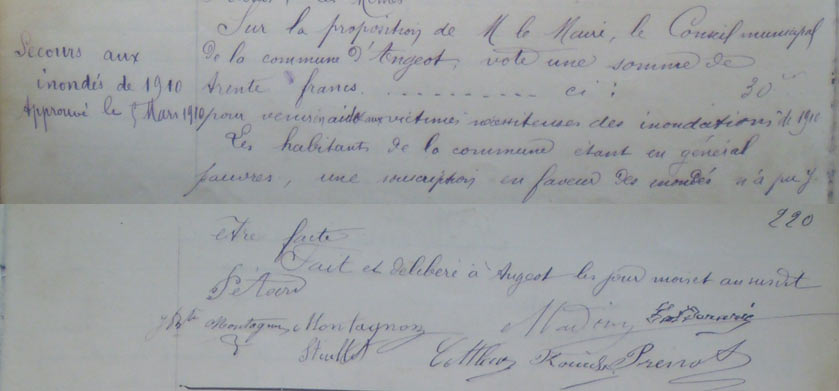 Sur la proposition de M le Maire, le Conseil municipal
Secours aux
de la commune d'Angeot, vote une somme de
inondés de 1910
trente francs. . . . . . . . . . . ci : 30
Approuvé le 5 Mars 1910
pour venir aide aux victimes nécessiteuses des inondations de 1910
Les habitants de la commune étant en général
pauvres, une souscription en faveur des inondés n'a pu y
220
être faite
Fait et délibéré à Angeot les jour mois et an susdit
Montagnon Montagnon
Prenot